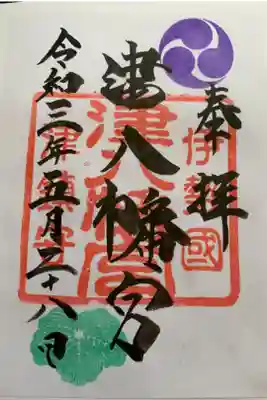 奉拝
伊勢國
津八幡宮
津八幡宮
津鎮守
令和三年五月二十八日